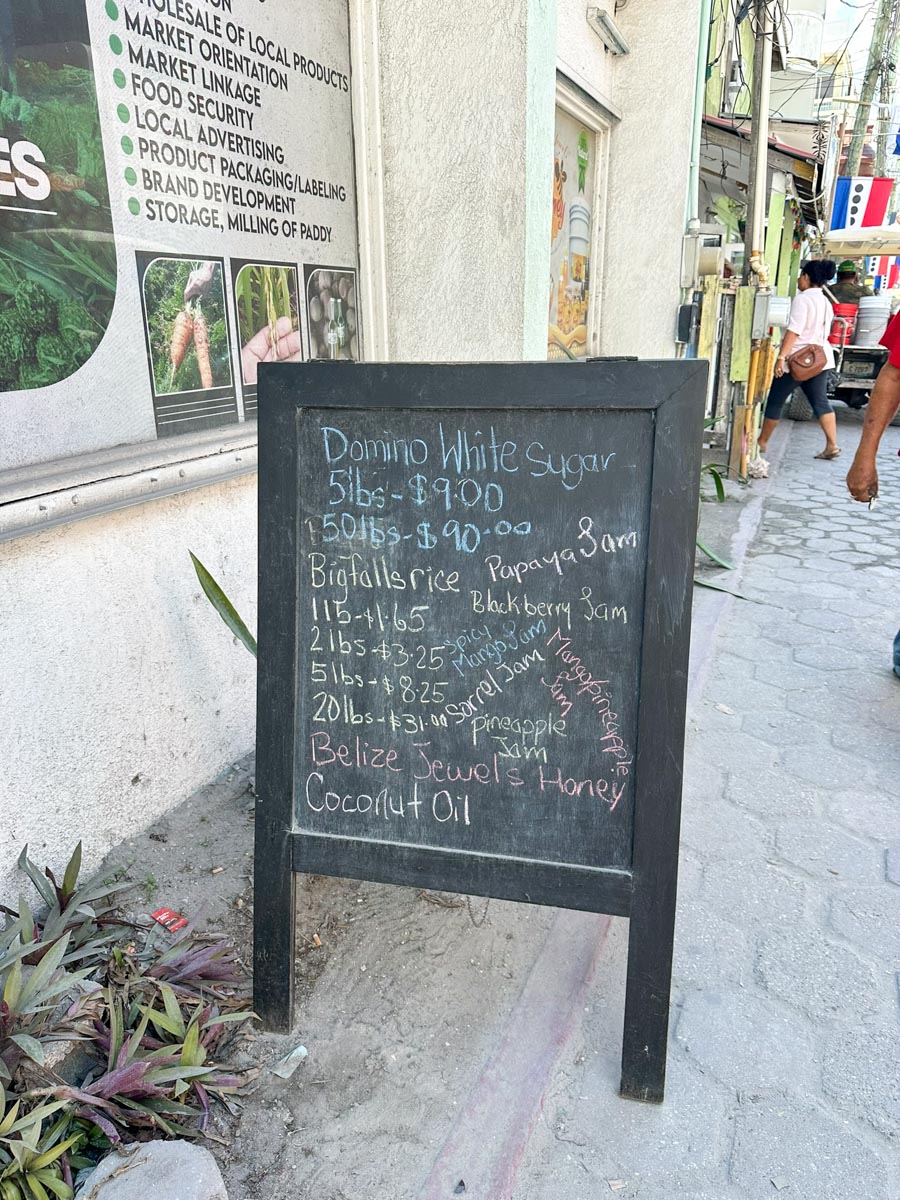 WHOLESALE OF LOCAL PRODUCTS
MARKET ORIENTATION
MARKET LINKAGE
FOOD SECURITY
LOCAL ADVERTISING
PRODUCT PACKAGING/LABELING
BRAND DEVELOPMENT
STORAGE, MILLING OF PADDY
ES
Domino White Sugar
5lbs-$9.00
50lbs-$90.00
Bigfalls rice
1lb-$1.65
2lbs-$3.25
5lbs-$8.25
20lbs-$31.00
Papaya Jam
Blackberry Jam
Spicy
Mango Jam
Sorrel Jam
Mango/pineapple
Jam
pineapple
Jam
Belize Jewels Honey
Coconut Oil